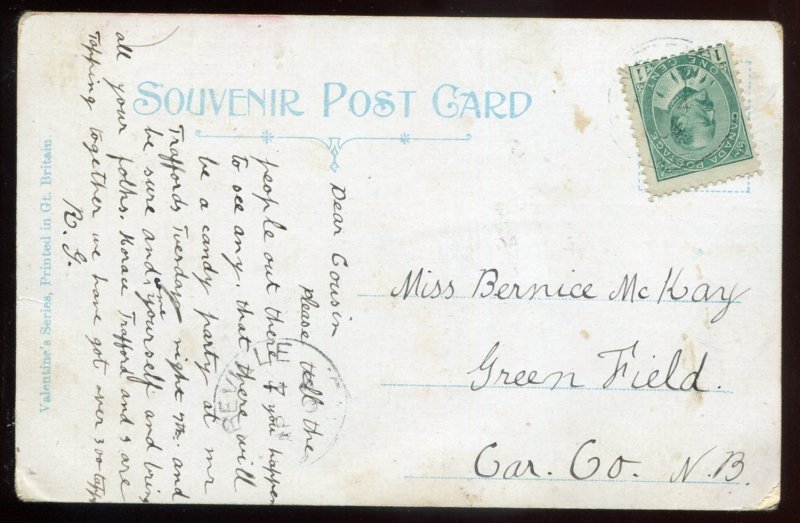 SOUVENIR POST CARD
Valentine's Series, Printed in Gt. Britain
CANADA POSTAGE
ONE CENT
1 1
Dear Cousin
Please tell the
people out there if you happen
to see any, that there will
be a candy party at mr
Traffords Tuesday night 7th. and
be sure and come yourself and bring
all your folks. Horace Trafford and I are
Tapping together we have got over 300 tapp
R. G.
Miss Bernice McKay
Green Field.
Car. Co. N.B.